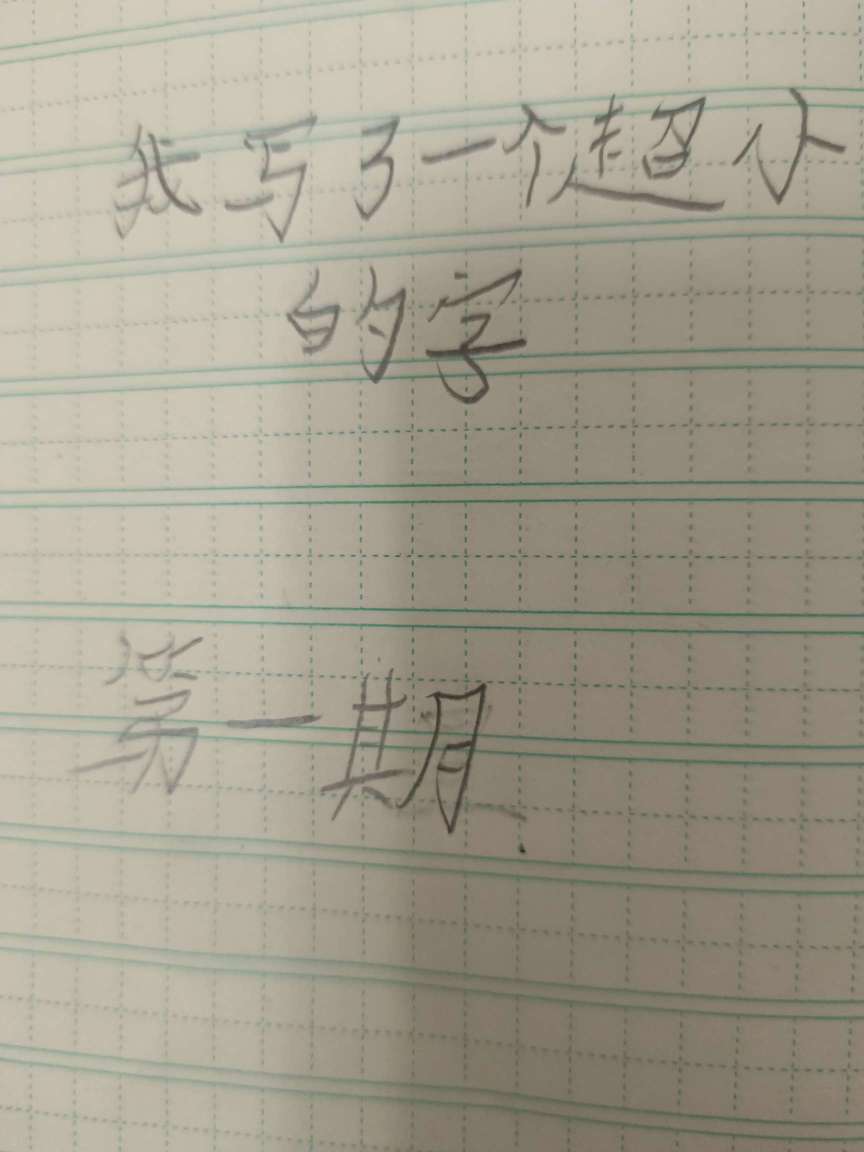 我写了一个超小
的字
第一期